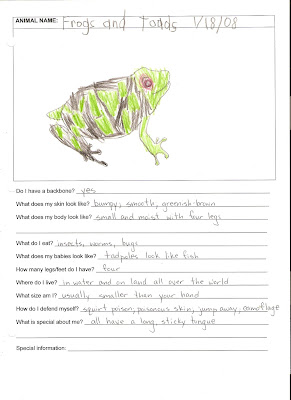 ANIMAL NAME: Frogs and Toads 1/18/08
Do I have a backbone? yes
What does my skin look like? bumpy, smooth, greenish-brown
What does my body look like? small and moist with four legs
What do I eat? insects, worms, bugs
What does my babies look like? tadpoles look like fish
How many legs/feet do I have? four
Where do I live? in water and on land all over the world
What size am I? usually smaller than your hand
How do I defend myself? squirt poison, poisonous skin, jump away, camoflage
What is special about me? all have a long, sticky tongue
Special information: